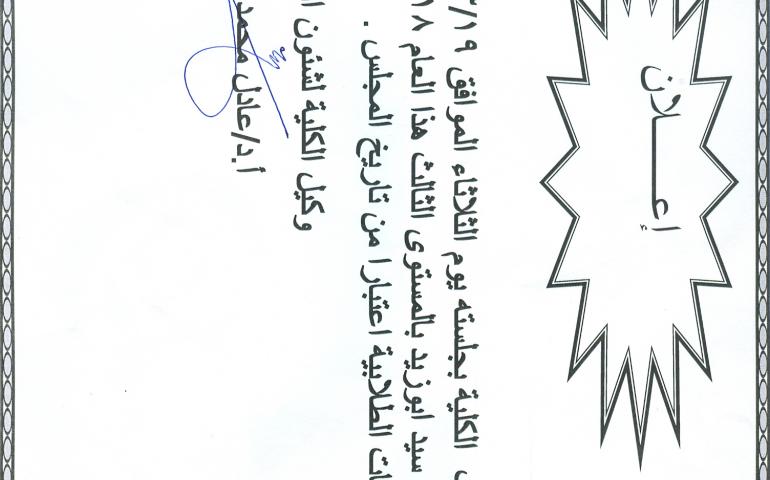 إعـــلان
الكلية بجلسته يوم الثلاثاء الموافق ١٩/
سيد ابوزيد بالمستوى الثالث هذا العام ١٨
الطلابية اعتبارا من تاريخ المجلس .
وكيل الكلية لشئون
أ.د/عادل محمد